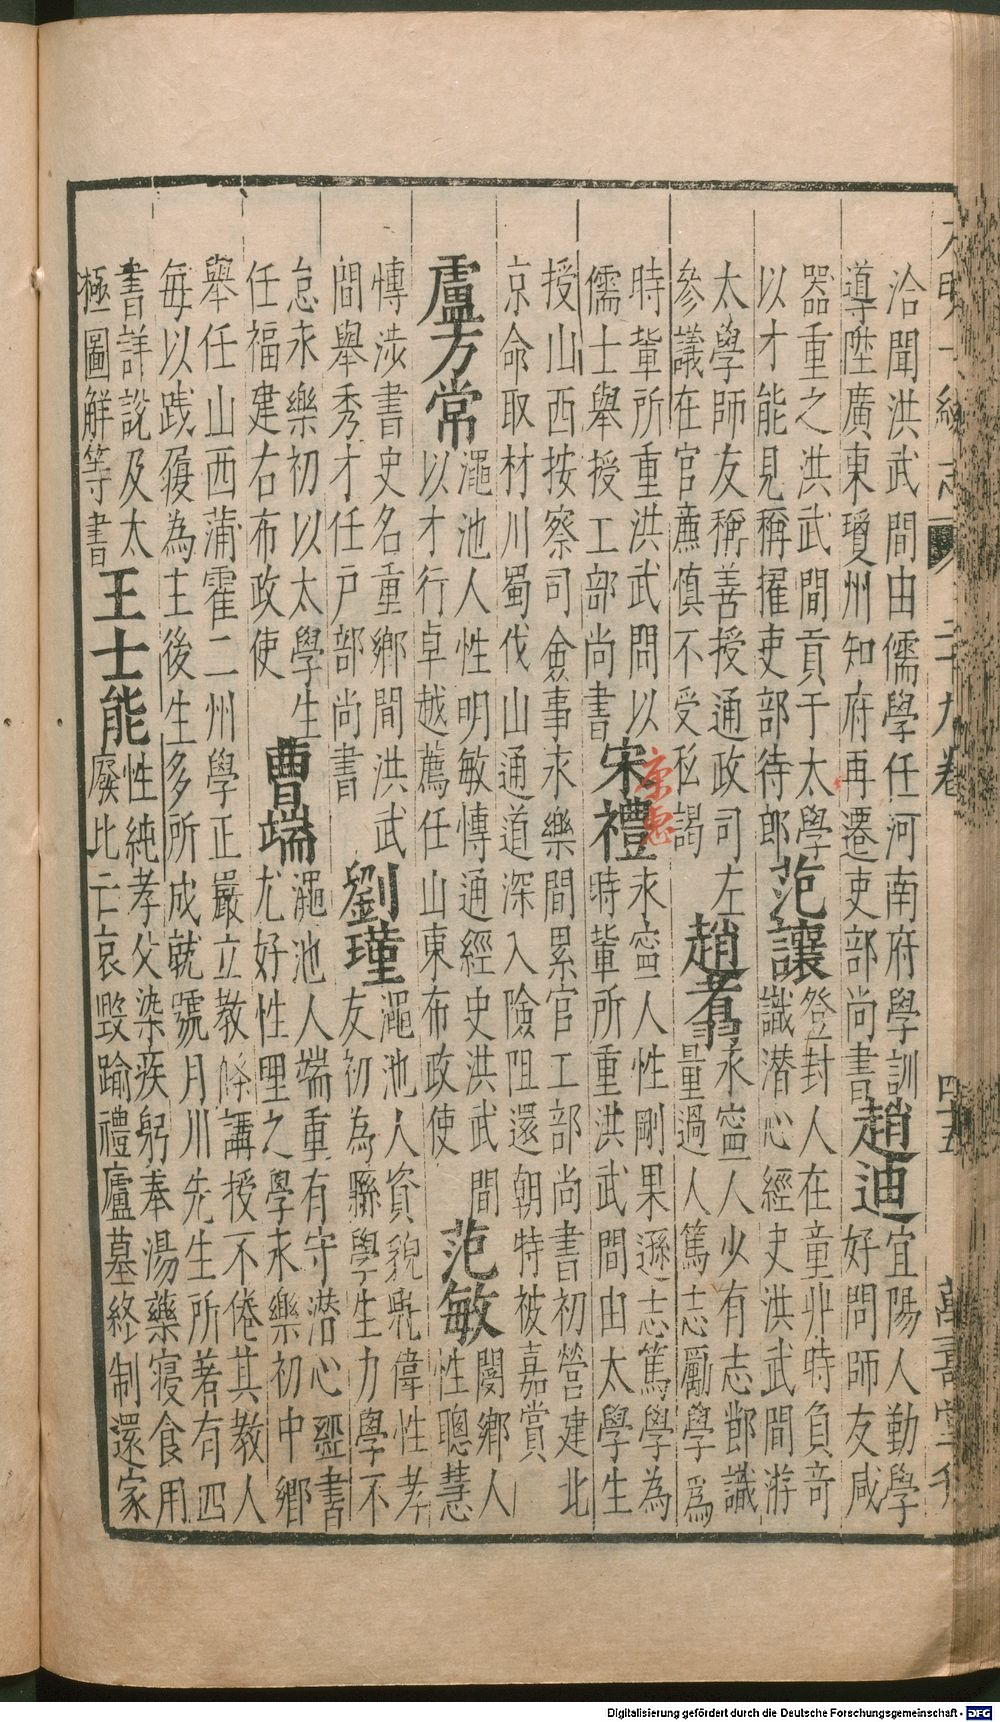 大明一統志 二十九卷 四十五 萬壽堂刋
洽聞洪武間由儒學任河南府學訓
導陞廣東瓊州知府再遷吏部尚書
趙迪
宜陽人勤學
好問師友咸
器重之洪武間貢于太學
以才能見稱擢吏部待郎
范讓
登封人在童丱時負奇
識潛心經史洪武間游
太學師友稱善授通政司左
參議在官廉慎不受私謁
趙翥
永寧人少有志
識
量過人篤志勵學爲
時輩所重洪武間以
儒士舉授工部尚書
宋禮
康惠
永寧人性剛果遜志篤學為
時輩所重洪武間由太學生
授山西按察司僉事永樂間累官工部尚書初營建北
京命取材川蜀伐山通道深入險阻還朝特被嘉賞
盧方常
澠池人性明敏慱通經史洪武間
以才行卓越薦任山東布政使
范敏
閿鄉人
性聰慧
慱涉書史名重鄉間洪武
間舉秀才任戶部尚書
劉瑾
澠池人資貌魁偉性孝
友初為縣學生力學不
怠永樂初以太學生
任福建右布政使
曹端
澠池人端重有守潛心經書
尤好性理之學永樂初中鄉
舉任山西蒲霍二州學正嚴立教條講授不倦其教人
每以践履為主後生多所成就號月川先生所著有四
書詳說及太
極圖解等書
王士能
性純孝父染疾躬奉湯藥寢食用
廢比亡哀毀踰禮廬墓終制還家
Digitalisierung gefördert durch die Deutsche Forschungsgemeinschaft - DFG